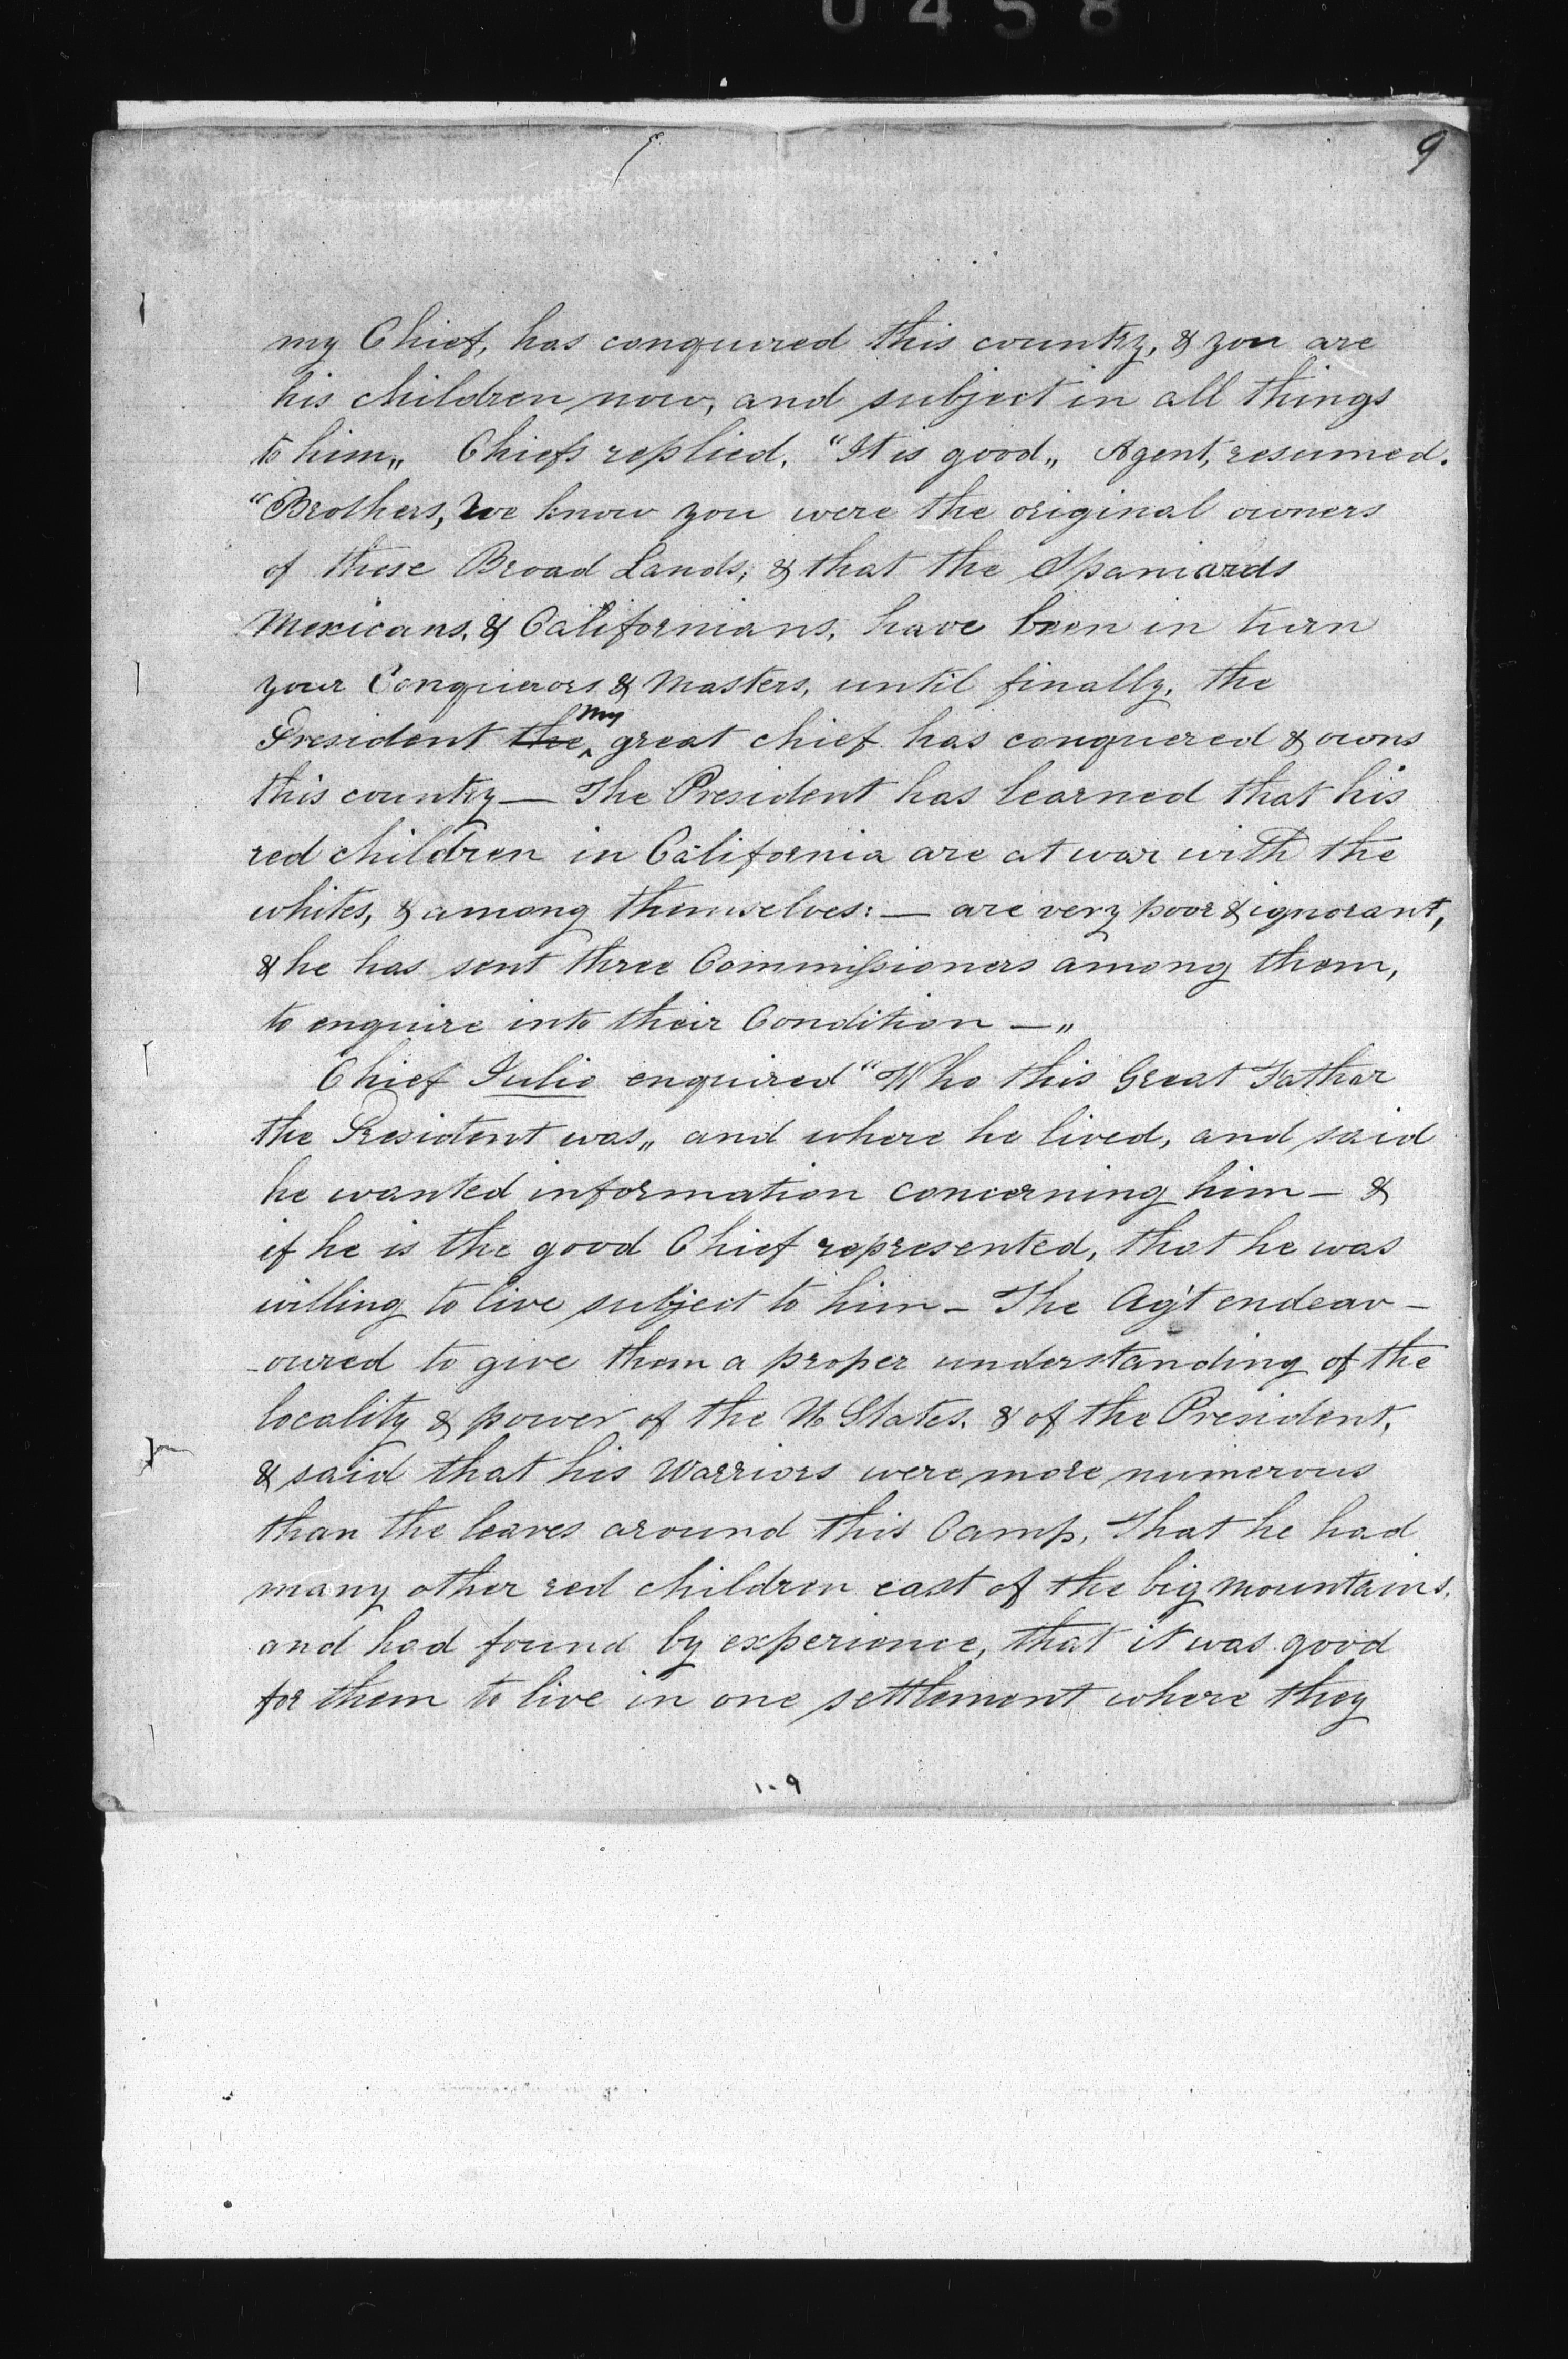 0458
9
my Chief, has conquered this country, & you are
his children now, and subject in all things
to him„ Chiefs replied, "It is good„ Agent, resumed.
"Brothers, we know you were the original owners
of these Broad Lands, & that the Spaniards
Mexicans, & Californians, have been in turn
your Conquerors & Masters, until finally, the
President the my great chief has conquered & owns
this country — The President has learned that his
red children in California are at war with the
whites, & among themselves: — are very poor & ignorant,
& he has sent three Commissioners among them,
to enquire into their Condition —„
Chief Julio enquired "Who this Great Father
the President was„ and where he lived, and said
he wanted information concerning him — &
if he is the good Chief represented, that he was
willing to live subject to him — The Ag't endeav-
-oured to give them a proper understanding of the
locality & power of the U States. & of the President,
& said that his Warriors were more numerous
than the leaves around this Camp, That he had
many other red children east of the big mountains,
and had found by experience, that it was good
for them to live in one settlement where they
1-9